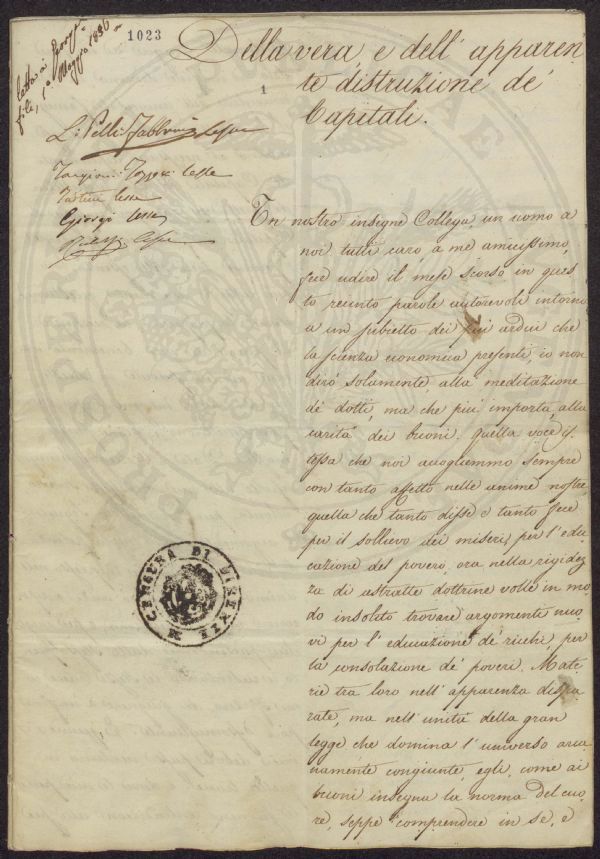 1023
Della vera e dell' apparen
1
te distruzione de'
Capitali.
Letta ai Georgo-
fili, 1° Maggio 1836
L: Pelli Fabbroni Cens:e
Targioni Tozzetti Cens:e
Giorgi Cens:e
Un nostro insigne Collega, un uomo a
noi tutti caro, a me amicissimo,
fece udire il mese scorso in ques
to recinto parole autorevoli intorno
a un subietto dei più ardui che
la scienza economica presenti, io non
dirò solamente, alla meditazione
de' dotti, ma che più importa, alla
carità dei buoni. Quella voce is
tessa che noi accogliemmo sempre
con tanto affetto nelle anime nostre
quella che tanto disse e tanto fece
per il sollievo dei miseri, per l'edu
cazione del povero, ora nella rigidez
za di astratte dottrine volle in mo
do insolito trovare argomenti nuo
vi per l' educazione de' ricchi, per
la consolazione de' poveri. Mate
rie tra loro nell' apparenza dispa
rate, ma nell' unità della gran
legge che domina l' universo arca
namente congiunte, egli, come ai
buoni insegna la norma del cuo
re, seppe comprendere in se, e
CENSURA DI FIRENZE